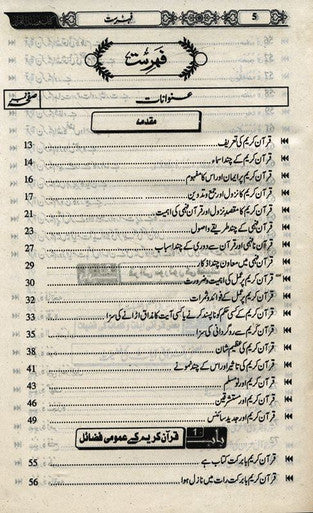 فہرست 5
فہرست
عنوانات صفحہ نمبر
مقدمہ
قرآن کریم کی تعریف 13
قرآن کریم کے چند اسماء 14
قرآن کریم پر ایمان اور اس کا مفہوم 16
قرآن کریم کا نزول اور جمع و تدوین 17
قرآن کریم کا مقصدِ نزول اور قرآن فہمی کی اہمیت 21
قرآن فہمی کے چند طریقے واصول 23
قرآن نافہمی اور قرآن سے دوری کے چند اسباب 27
قرآن فہمی میں معاون چند اذکار 29
قرآن کریم پر عمل کی اہمیت وضرورت 30
قرآن کریم پر عمل کے فوائد وثمرات 32
قرآن کریم کے کسی حکم کو ناپسند کرنے یا کسی آیت کا مذاق اڑانے کی سزا 33
قرآن کریم سے روگردانی کی سزا 35
قرآن کریم کی عظیم شان 38
قرآن کریم کی تاثیر اور اس کے چند نمونے 41
قرآن کریم اور نومسلم 43
قرآن کریم اور مستشرقین 46
قرآن کریم اور جدید سائنس 49
باب 1 قرآن کریم کے عمومی فضائل
قرآن کریم بابرکت کتاب ہے 55
قرآن کریم بابرکت رات میں نازل ہوا 56